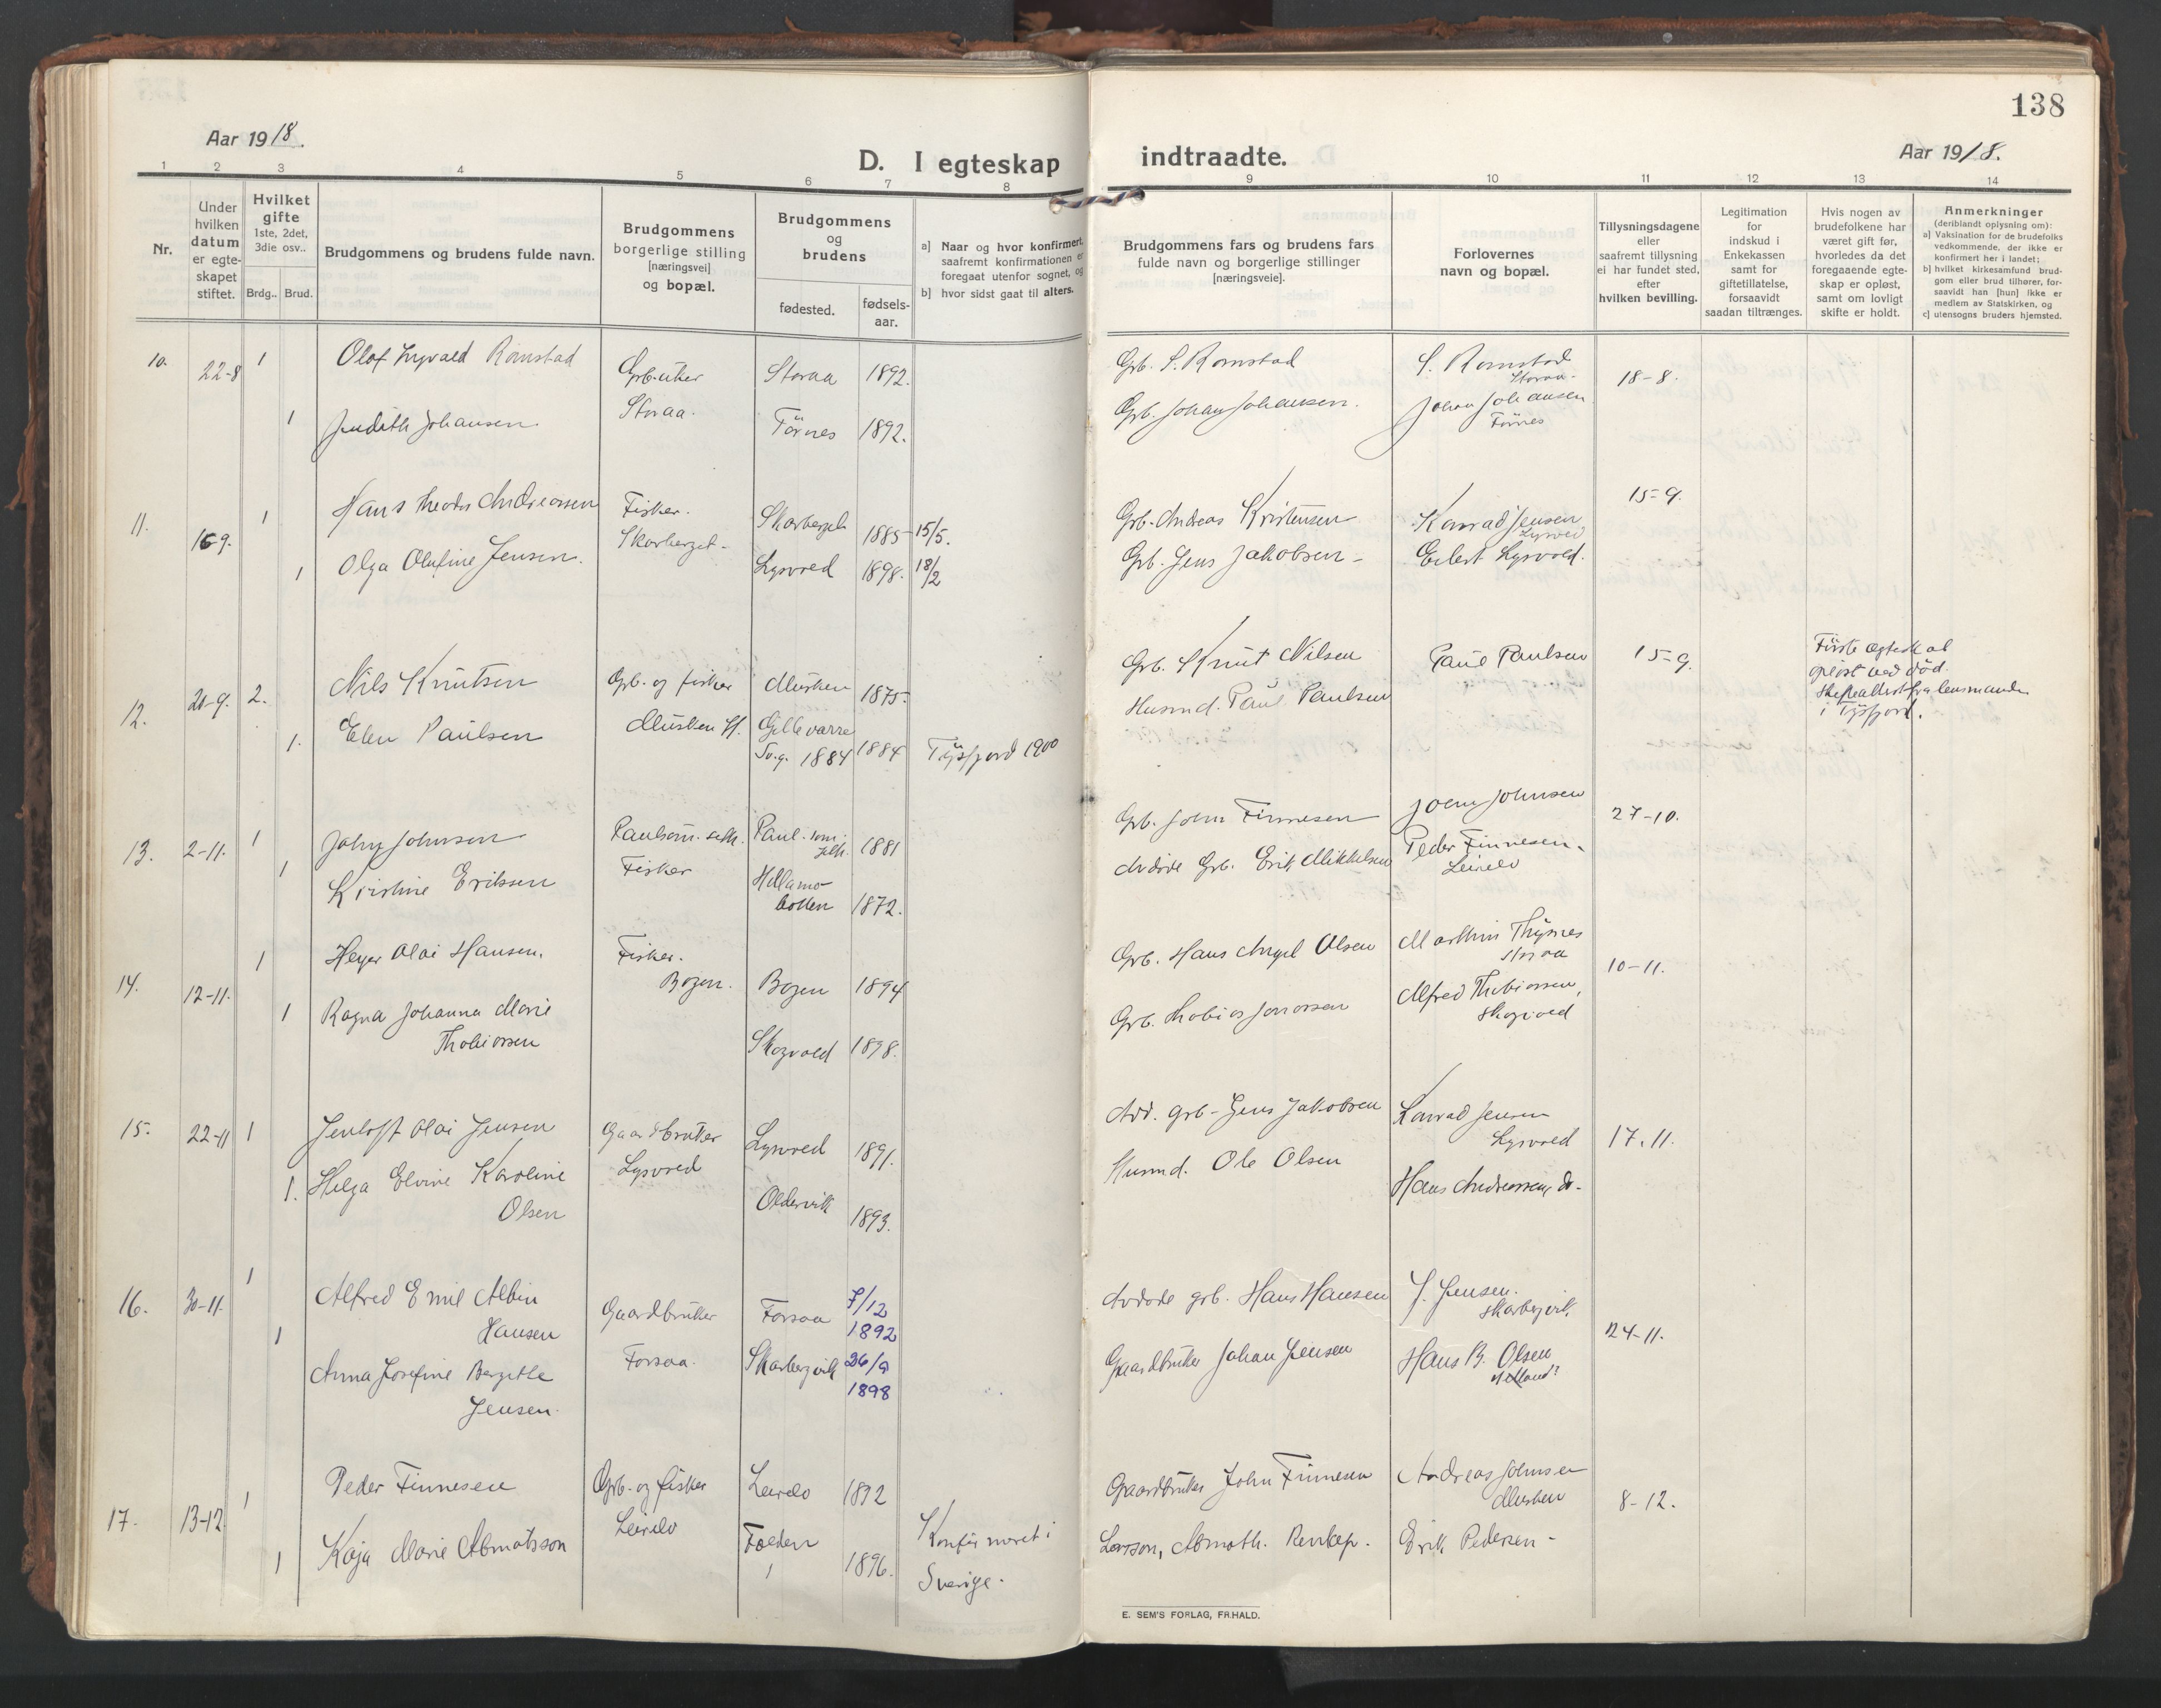 138
Aar 1918.
D. I egteskap indtraadte.
Aar 1918.
1 2 3 4 5 6 7 8 9 10 11 12 13 14
Nr.
Under hvilken datum er egteskapet stiftet.
Hvilket gifte 1ste, 2det, 3die osv..
Brdg.. Brud.
Brudgommens og brudens fulde navn.
Brudgommens borgerlige stilling [næringsvei] og bopæl.
Brudgommens og brudens
fødested.
fødsels-aar.
a] Naar og hvor konfirmert, saafremt konfirmationen er foregaat utenfor sognet, og
b] hvor sidst gaat til alters.
Brudgommens fars og brudens fars fulde navn og borgerlige stillinger [næringsveie].
Forlovernes navn og bopæl.
Tillysningsdagene eller saafremt tillysning ei har fundet sted, efter hvilken bevilling.
Legitimation for indskud i Enkekassen samt for giftetillatelse, forsaavidt saadan tiltrænges.
Hvis nogen av brudefolkene har været gift før, hvorledes da det foregaaende egteskap er opløst, samt om lovligt skifte er holdt.
Anmerkninger (deriblandt oplysning om):
a] Vaksination for de brudefolks vedkommende, der ikke er konfirmert her i landet;
b] hvilket kirkesamfund brudgom eller brud tilhører, forsaavidt han [hun] ikke er medlem av Statskirken, og
c] utensogns bruders hjemsted.
10. 22-8 1 Olaf Ingvald Ramstad Storaa 1892. Grb. S. Ramstad S. Ramstad Storaa. 18-8.
Storaa.
1 Judith Johansen. Førnes 1892. Grb. Johan Johansen. Johan Johansen Førnes
11. 16-9. 1 Hans Theodor Andreassen Fisker. Skarberget 1885 15/5. Grb. Andreas Kristensen Konrad Jensen Lysvold 15-9.
Skarberget.
1 Olga Olufine Jensen. Lysvold 1898. 18/2 Grb. Jens Jakobsen Eilert Lysvold.
12. 20-9. 2. Nils Knutsen Grb. og fisker Musken 1875. Grb. Knut Nilsen Paul Paulsen 15-9. Første egtesk. opløst ved død. Skifteattest fra lensmanden i Tysfjord.
1. Elen Paulsen Musken Gellevarre Sv. g. 1884 1884 Tysfjord 1900 Husmd. Paul Paulsen
13. 2-11. 1 John Johnsen 1881 Grb. John Finnesen John Johnsen 27-10.
Fisker
1 Kirstine Eriksen Hellamobotten 1872. Avdøde Grb. Erik Mikkelsen Peder Finnesen. Leirelv
14. 12-11. 1 Heger Olai Hansen. Fisker. Bogen. Bogen 1894 Grb. Hans Angel Olsen Marthin Thysnes Storaa 10-11.
1 Ragna Johanna Marie Thobiassen Skogvold 1898. Grb. Thobias Jonassen Alfred Thobiassen, Skogvold
15. 22-11 1 Jentoft Olai Jensen Gaardbruker Lysvold Lysvold 1891. Avd. grb. Jens Jakobsen Konrad Jensen Lysvold 17.11.
1. Helga Elvine Karoline Olsen Oldervik 1893. Husmd. Ole Olsen Hans Andreassen, do.
16. 30-11. 1 Alfred Emil Albin Hansen Gaardbruker Forsaa. Forsaa 7/12 1892 Avdøde grb. Hans Hansen J. Jensen. Skarbergvik 24-11.
1 Anna Josefine Bergitte Jensen. Skarbergvik 26/9 1898 Gaardbruker Johan Jensen Hans B. Olsen
17. 13-12 1 Peder Finnesen Grb. og fisker Leirelv Leirelv 1892 Gaardbruker John Finnesen Andreas Johnsen Musken 8-12.
1 Kaja Marie Abmatsson Folden 1896. Konfirmeret i Sverige. Larsson, Abmoth. Erik Pedersen
E. SEM'S FORLAG, FR.HALD.